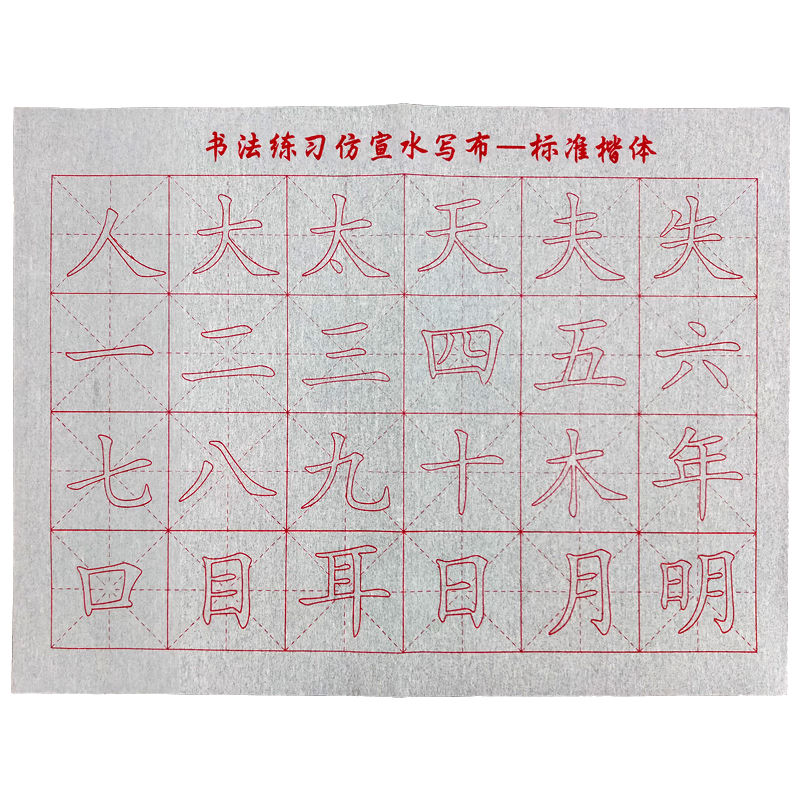 书法练习仿宣水写布—标准楷体
人大太天夫失
一二三四五六
七八九十木年
口目耳日月明